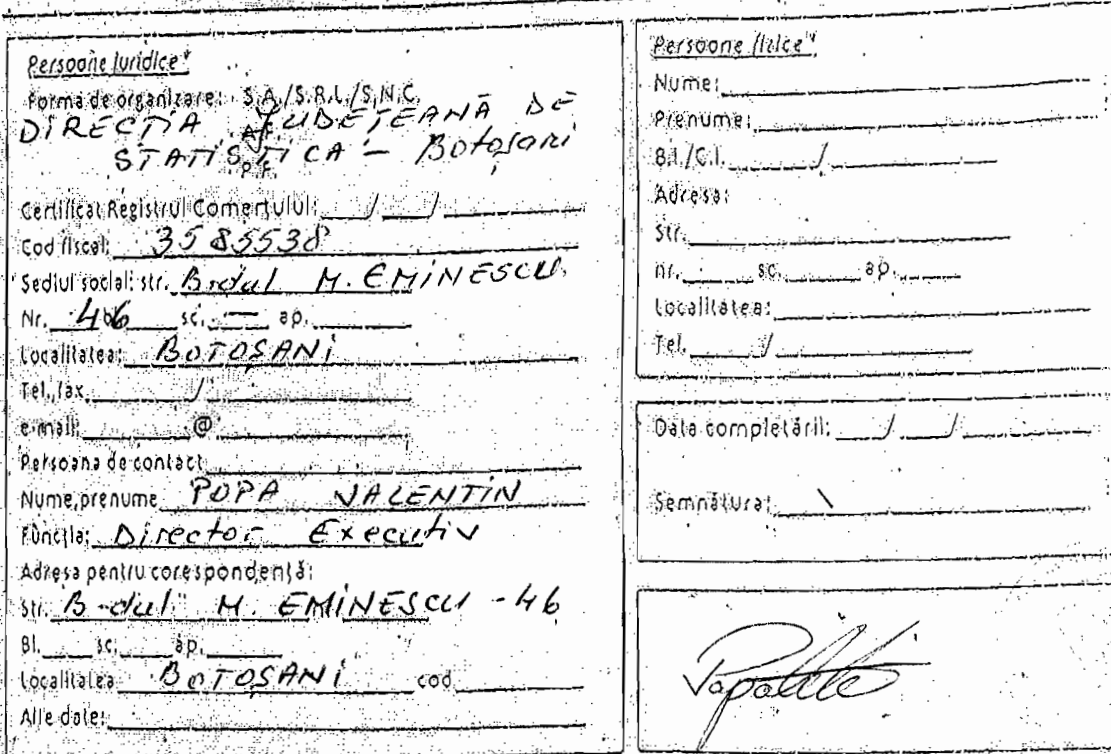 Persoane juridice*
Forma de organizare: S.A./S.R.L./S.N.C.
DIRECȚIA JUDEȚEANĂ DE
A.F.
STATISTICA - Botoșani
P.F.
Certificat Registrul Comerțului: ___/___/___
Cod fiscal: 3585538
Sediul social: str. B-dul M. EMINESCU
Nr. 46 sc. — ap.
Localitatea: BOTOȘANI
Tel./fax. /
e-mail: @
Persoana de contact
Nume, prenume POPA VALENTIN
Funcția: Director Executiv
Adresa pentru corespondență:
Str. B-dul M. EMINESCU - 46
Bl. sc. ap.
Localitatea BOTOȘANI cod
Alte date:
Persoane fizice*
Nume:
Prenume:
B.I./C.I. /
Adresa:
Str.
nr. sc. ap.
Localitatea:
Tel. /
Data completării: / /
Semnătura: